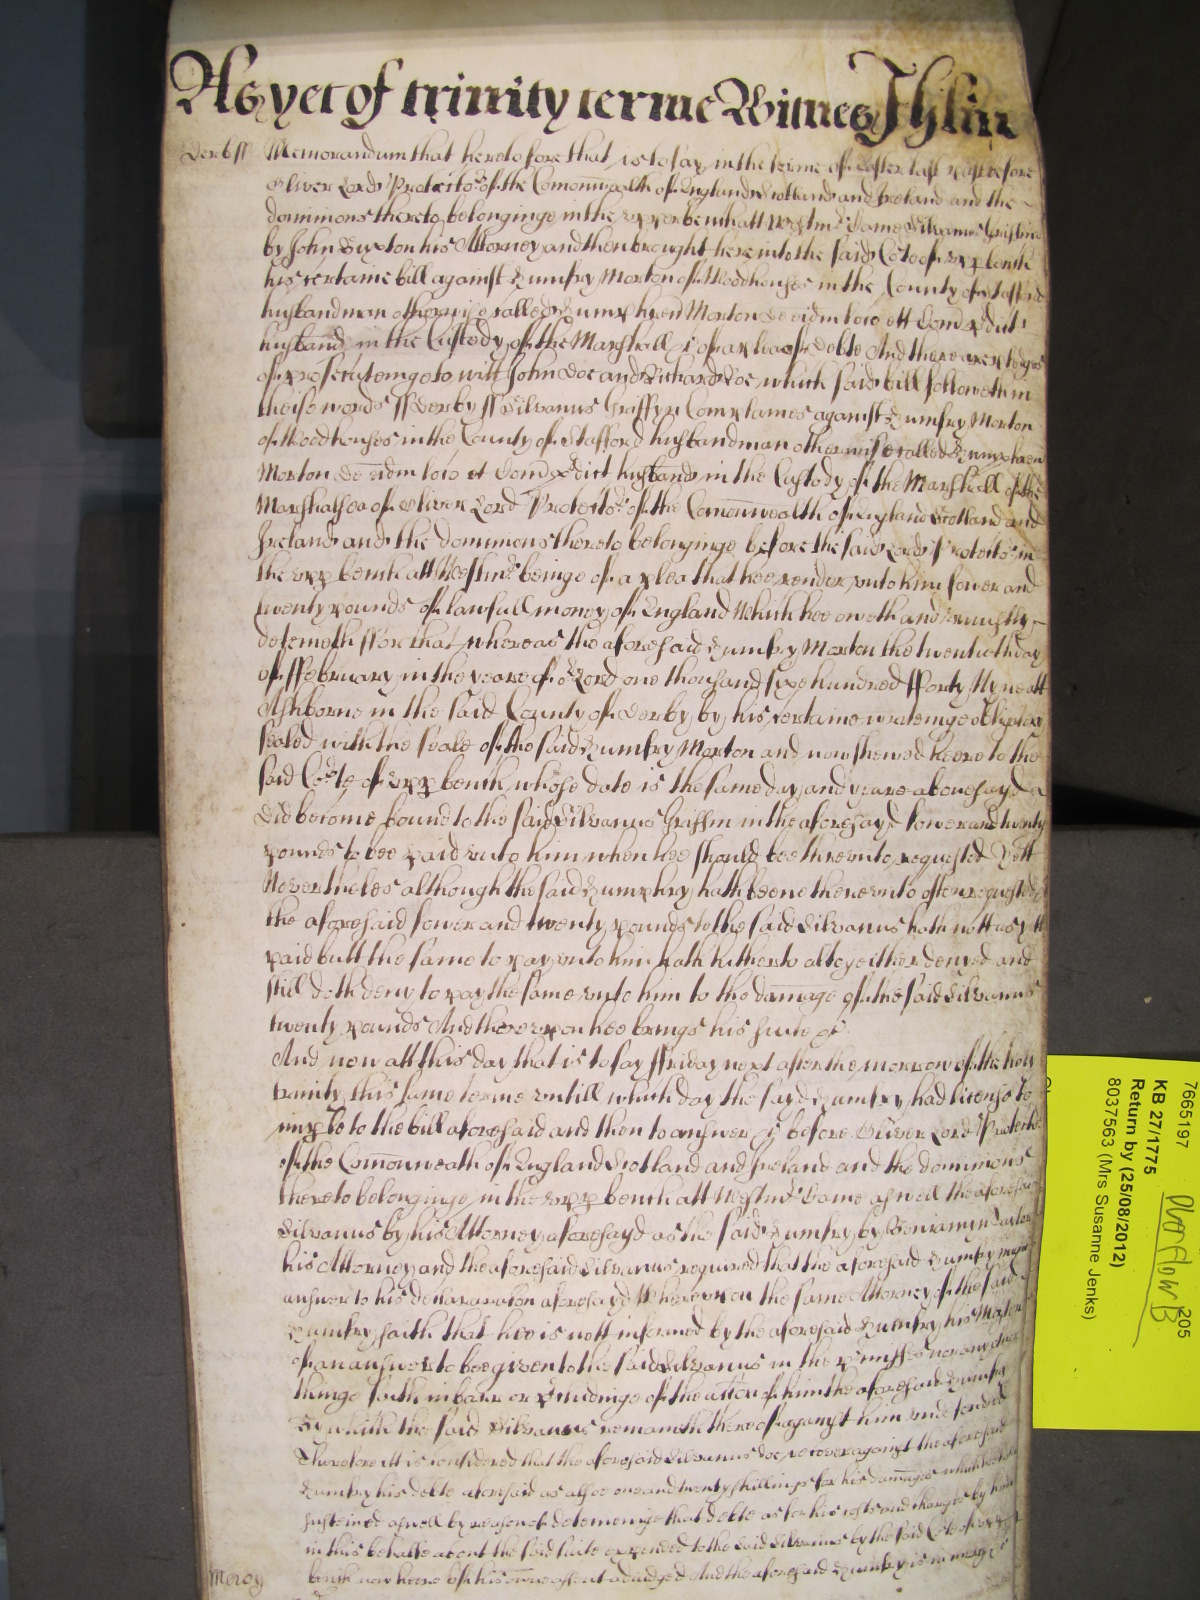 As yet of trinity terme Witnes J Glin
Derb ss Memorandum that heretofore that is to say in the terme of Easter last past before
Oliver Lord Protector of the Comonwealth of England Scotland and Ireland and the
dominions thereto belonginge in the upper bench att Westmr Came Silvanus Griffine
by John Buxton his Attorney and then brought here into the said Cote of upp bench
his certaine bill against Humfry Morton of Woodhouses in the County of Stafford
husbandman otherwise called Humphred Morton de eidm loco ett Com pdict
husband in the Custody of the Marshall &c of a plea of debte And there are pledges
of prosecuteinge to witt John Doe and Richard Roe which said bill followeth in
theise words ss Derby ss Silvanus Griffyn Complaines against Humfry Morton
of Woodhouses in the County of Stafford husbandman otherwise called Humphren
Morton de eidm loco et Com pdict husband in the Custody of the Marshall of the
Marshalsea of Oliver Lord Protector of the Comonwealth of England Scotland and
Ireland and the dominions thereto belonginge before the said Lord Protector in
the upp bench att Westmr beinge of a plea that hee render unto him fower and
twenty pounds of lawfull money of England Which hee oweth and uniustly
deteineth ffor that whereas the aforesaid Humfry Morton the twentieth day
of ffebruary in the yeare of or Lord one thousand sixe hundred fforty Nyne att
Ashborne in the said County of Derby by his certaine writeinge obligatory
sealed with the seale of the said Humfry Morton and now shewed heere to the
said Cote of upp bench whose date is the same day and yeare abovesayd
did become bound to the said Silvanus Griffin in the aforesayd fower and twenty
pounds to bee paid unto him when hee should bee thereunto requested Yett
Nevertheles although the said Humphry hath beene thereunto often requested
the aforesaid fower and twenty pounds to the said Silvanus hath nott as yett
paid butt the same to pay unto him hath hitherto altogeither denyed and
still doth deny to pay the same unto him to the damage of the said Silvanus
twenty pounds And thereupon hee brings his suite &c
And now att this day that is to say ffriday next after the morrow of the holy
trinity this same terme untill which day the sayd Humfry had license to
imple to the bill aforesaid and then to answer &c before Oliver Lord Protector
of the Comonweath of England Scotland and Ireland and the dominions
thereto belonginge in the upp bench att Westmr Came as well the aforesaid
Silvanus by his Attorney aforesayd as the said Humfry by Beniamyn Taylor
his Attorney and the aforesaid Silvanus required that the aforesaid Humfry might
answer to his declaracion aforesayd Whereupon the same Attorney of the said
Humfry saith that hee is nott informed by the aforesaid Humfry his Master
of an answer to bee given to the said Silvanus in the pmisses nor any other
thinge saith in barr or pcludinge of the action of him the aforesaid Humfry
By which the said Silvanus remaineth thereof against him undefended
Therefore itt is considered that the aforesaid Silvanus doe recover against the aforesaid
Humfry his debte aforesaid as alsoe one and twenty shillings for his damages which hee hath
susteined aswell by reason of deteineinge that debte as for his costs and charges by him
in this behalfe about the said suite expended to the said Silvanus by the said Cote of upp
bench now heere of his owne assent adiudged And the aforesaid Humfry is in mercy &c
Mercy
7665197
KB 27/1775
Return by (25/08/2012)
8037563 (Mrs Susanne Jenks)
205